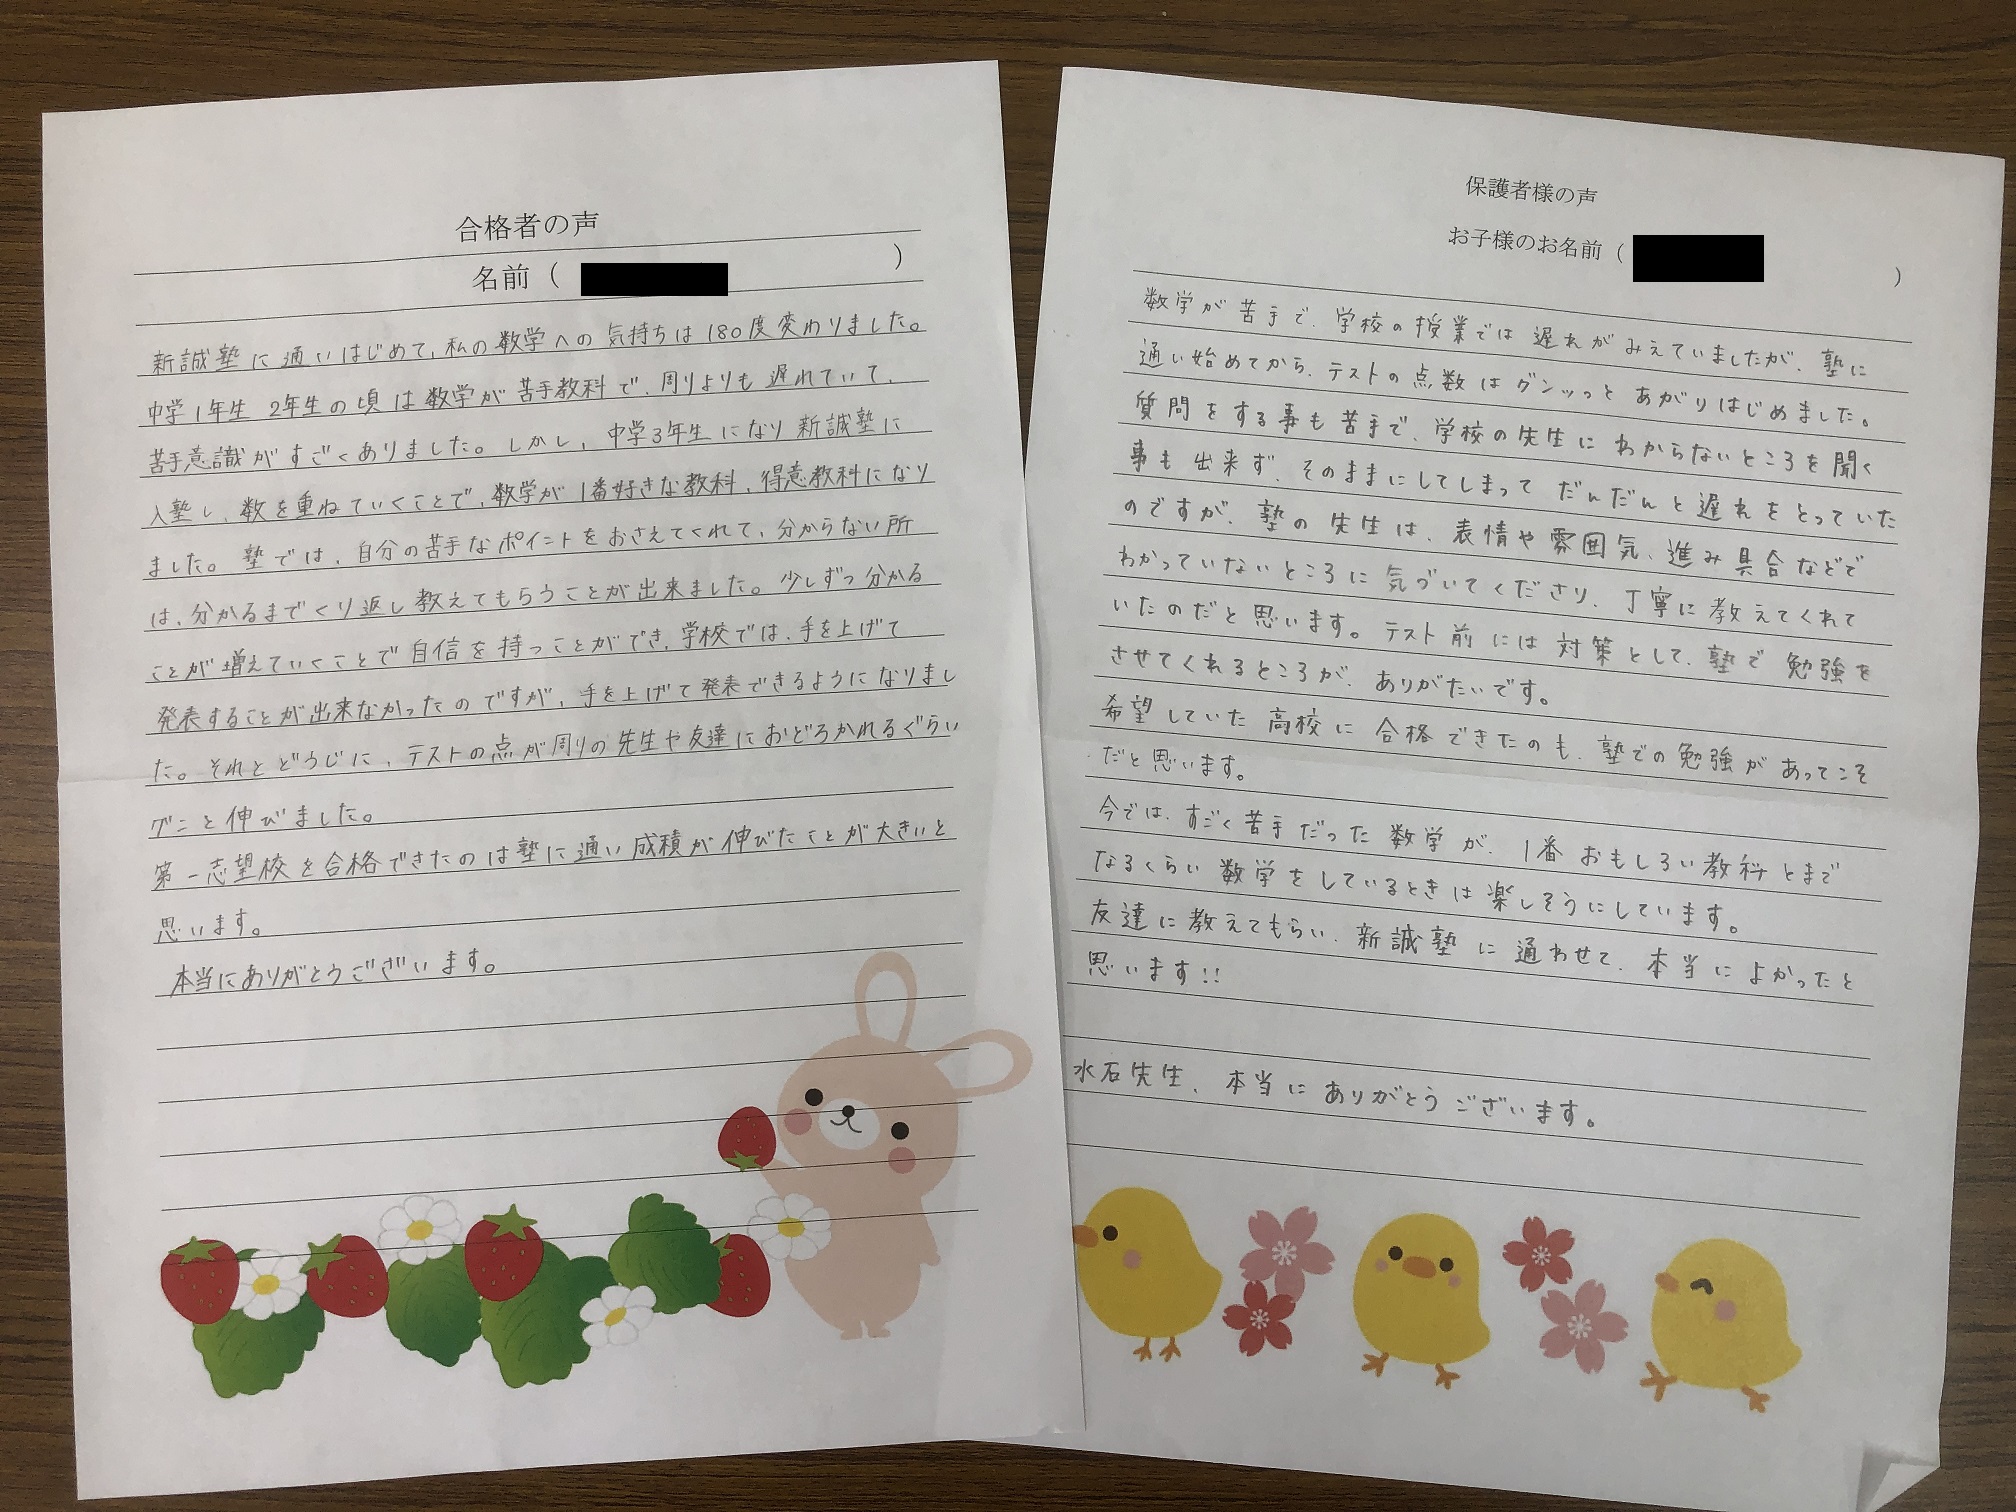 合格者の声
名前（　）
新誠塾に通いはじめて、私の数学への気持ちは180度変わりました。
中学1年生 2年生の頃は数学が苦手教科で、周りよりも遅れていて、
苦手意識がすごくありました。しかし、中学3年生になり新誠塾に
入塾し、数を重ねていくことで、数学が1番好きな教科、得意教科になり
ました。塾では、自分の苦手なポイントをおさえてくれて、分からない所
は、分かるまでくり返し教えてもらうことが出来ました。少しずつ分かる
ことが増えていくことで自信を持つことができ、学校では、手を上げて
発表することが出来なかったのですが、手を上げて発表できるようになりまし
た。それとどうじに、テストの点が周りの先生や友達におどろかれるぐらい
グンと伸びました。
第一志望校を合格できたのは塾に通い成績が伸びたことが大きいと
思います。
本当にありがとうございます。
保護者様の声
お子様のお名前（　）
数学が苦手で、学校の授業では遅れがみえていましたが、塾に
通い始めてから、テストの点数はグンッっとあがりはじめました。
質問をする事も苦手で、学校の先生にわからないところを聞く
事も出来ず、そのままにしてしまってだんだんと遅れをとっていた
のですが、塾の先生は、表情や雰囲気、進み具合などで
わかっていないところに気づいてくださり、丁寧に教えてくれて
いたのだと思います。テスト前には対策として、塾で勉強を
させてくれるところが、ありがたいです。
希望していた高校に合格できたのも、塾での勉強があってこそ
だと思います。
今では、すごく苦手だった数学が、1番おもしろい教科とまで
なるくらい数学をしているときは楽しそうにしています。
友達に教えてもらい、新誠塾に通わせて、本当によかったと
思います!!
水石先生、本当にありがとうございます。